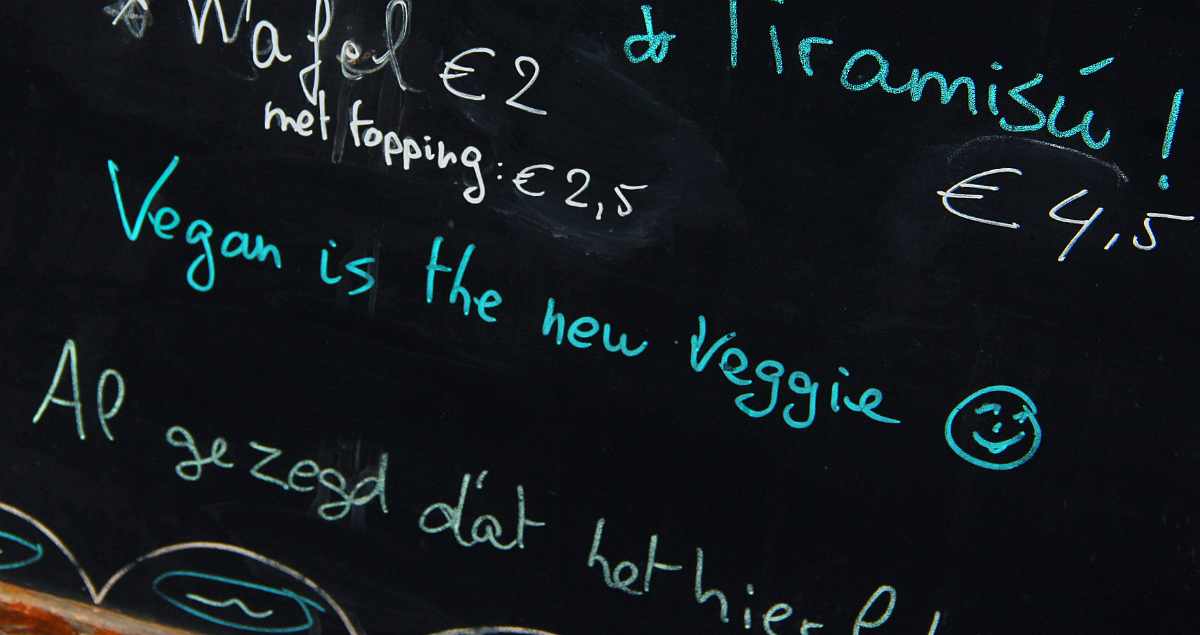 Wafel €2
met topping: €2,5
Tiramisú!
€4,5
Vegan is the new Veggie
Al gezegd dat het hier